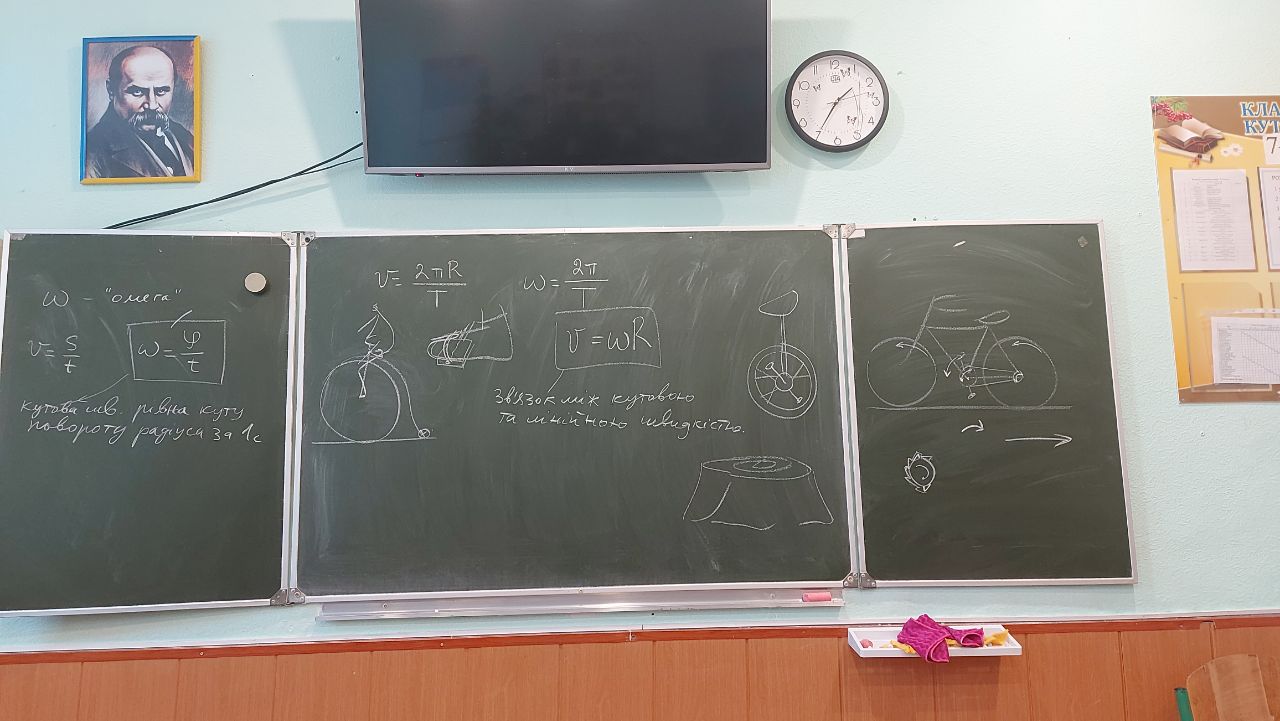 ω - "омега"
v = S/t
ω = φ/t
кутова шв. рівна куту
повороту радіуса за 1с
v = 2πR/T
ω = 2π/T
v = ωR
Зв'язок між кутовою
та лінійною швидкістю.
12
11
10
9
8
7
6
5
4
3
2
КЛА
КУТ
7-